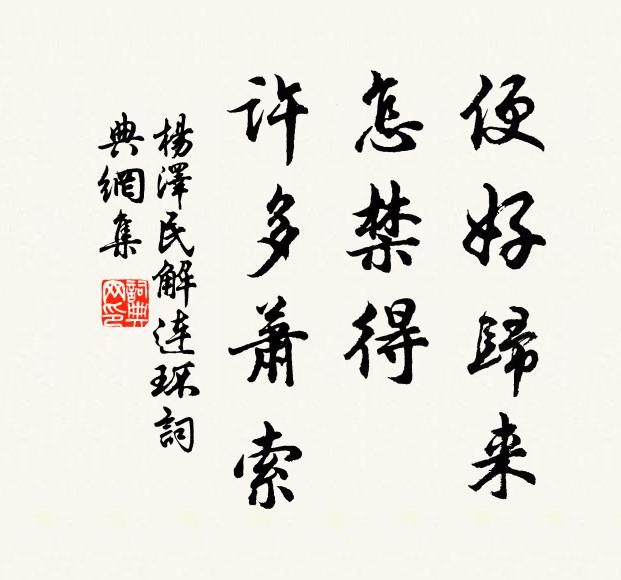 便好歸来
怎禁得
許多蕭索
楊澤民解连环詞
典網集
詞典网印